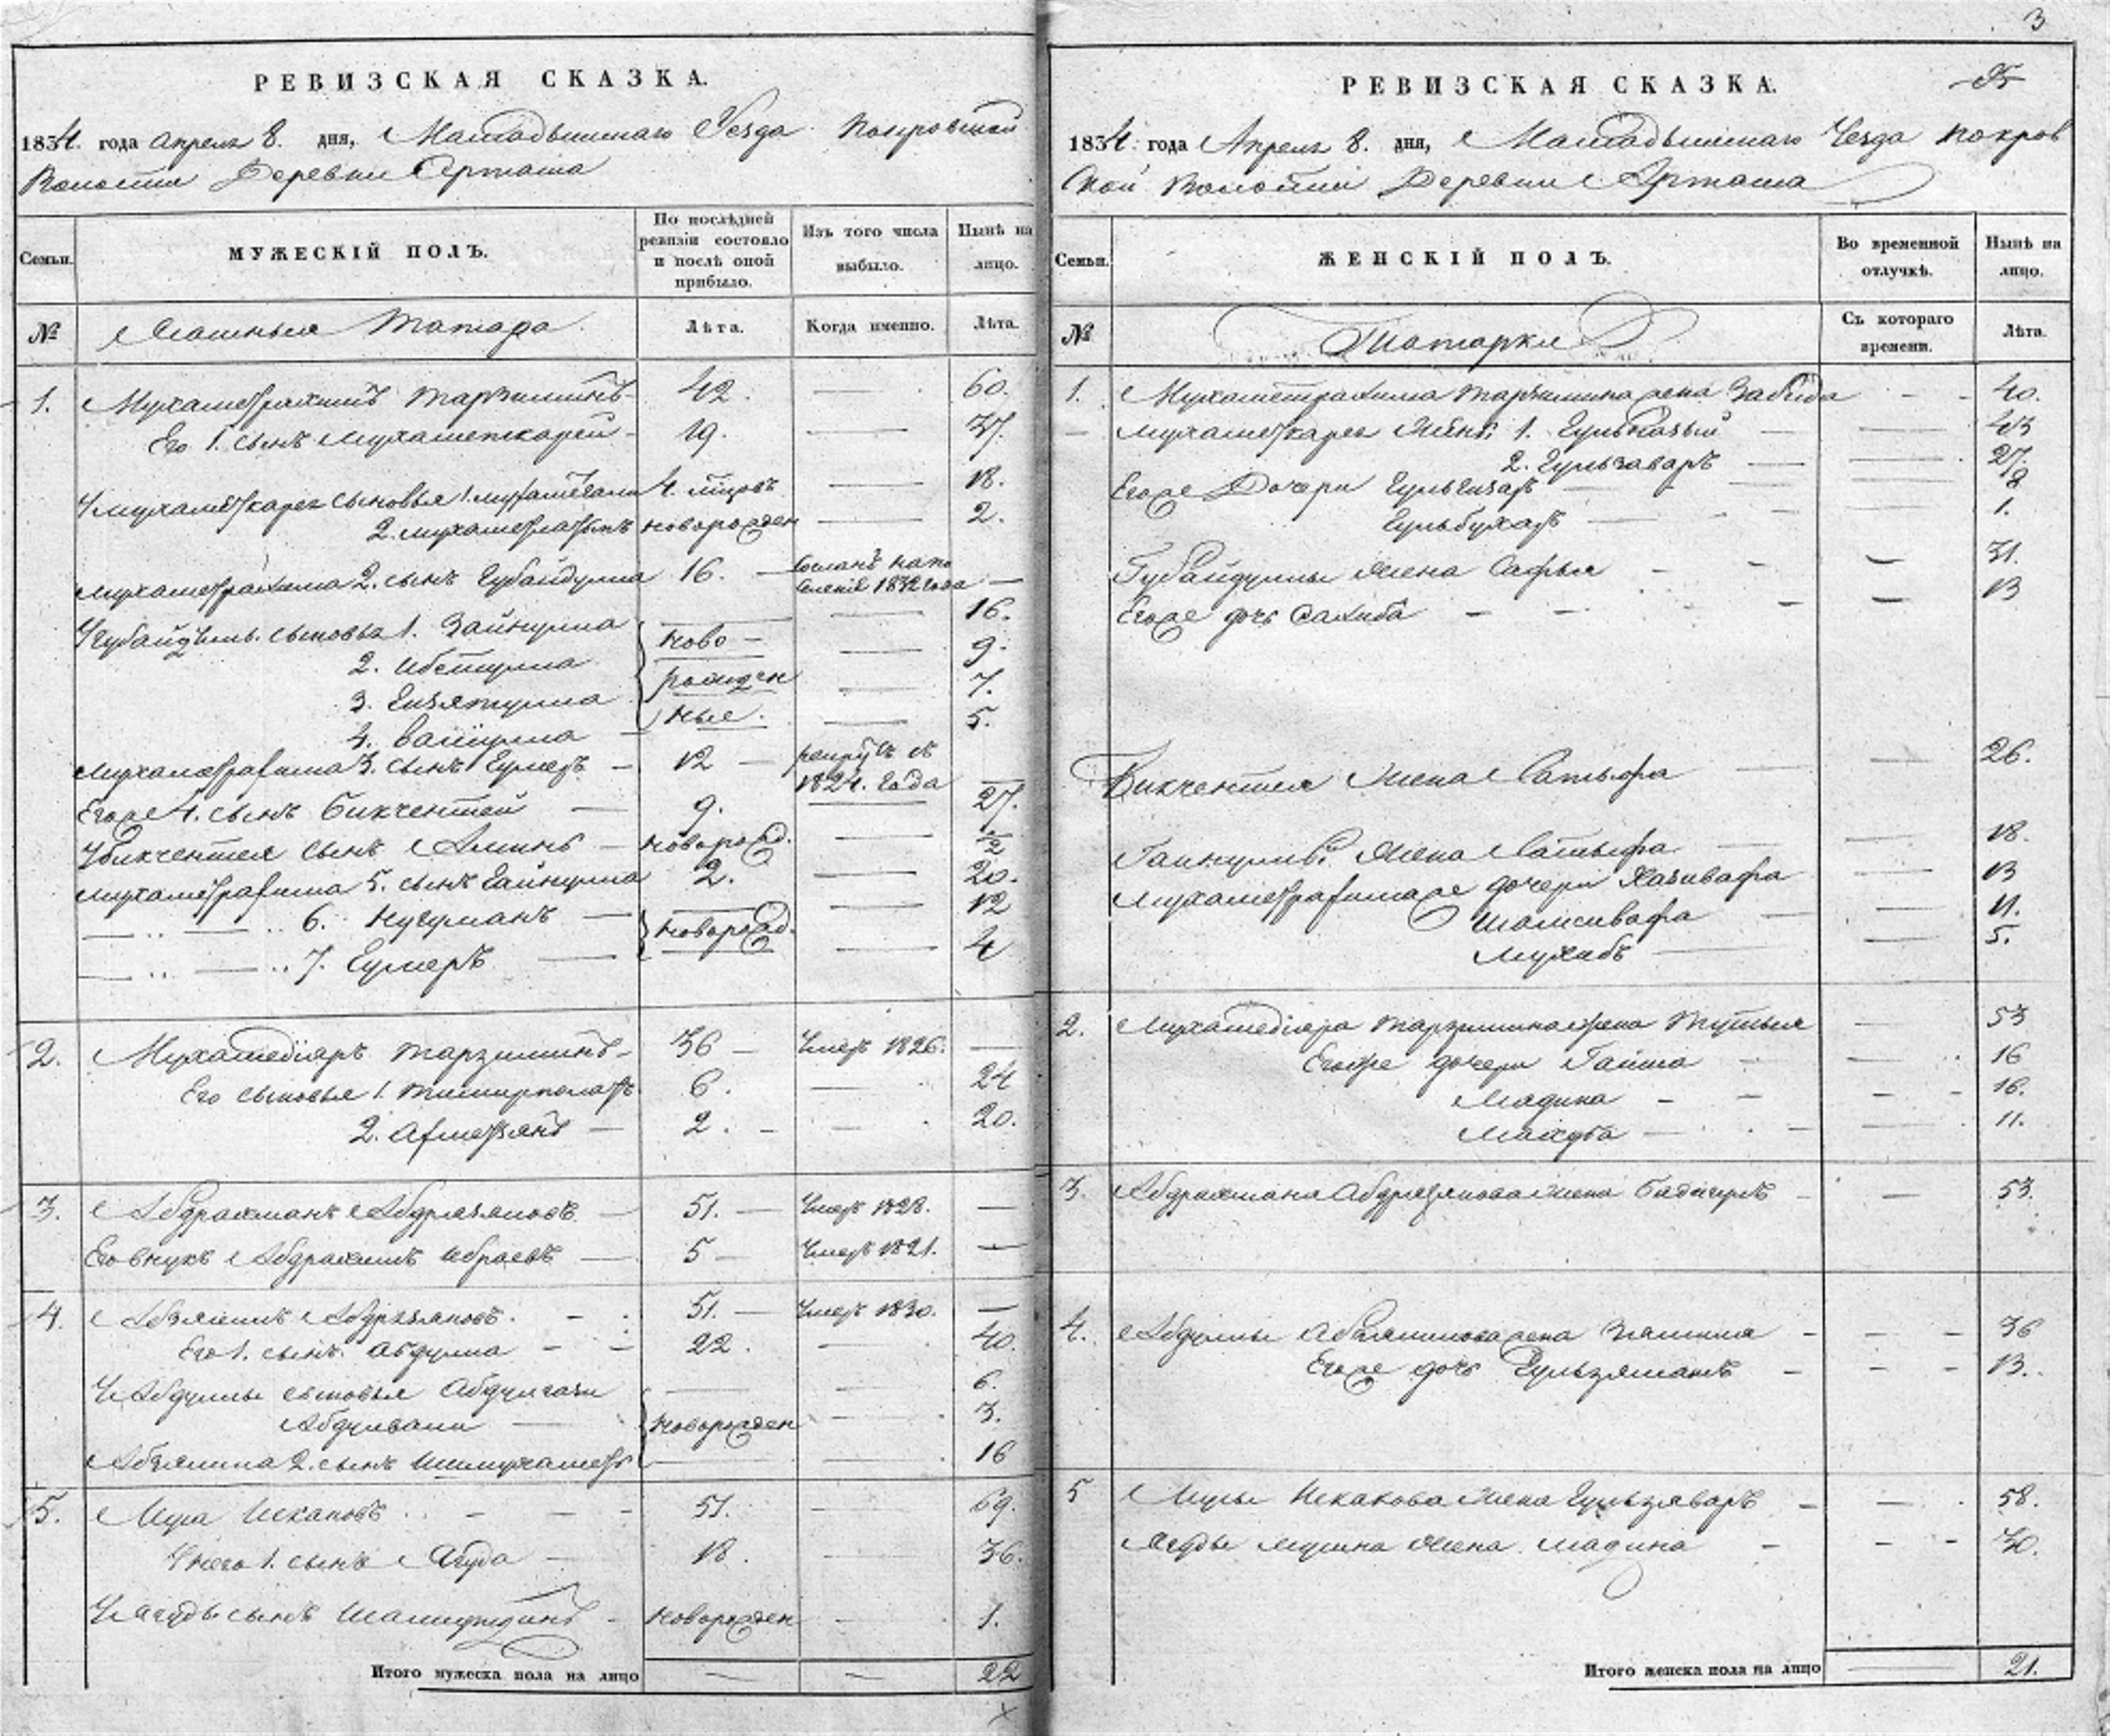 РЕВИЗСКАЯ СКАЗКА.
1834 года Апреля 8. дня, Мамадышскаго Уезда Покровской
Волости Деревни Арташа
Семьи.
МУЖЕСКІЙ ПОЛЪ.
По послѣдней ревизіи состояло и послѣ оной прибыло.
Изъ того числа выбыло.
Нынѣ на лицо.
№
Татара
Лѣта.
Когда именно.
Лѣта.
1. Мухаметрахимъ Тарзиминъ 42. — 60.
Его 1. сынъ Мухаметкарей 19. — 37.
У Мухаметкарея сыновья 1. 4. — 18.
2. новорожден — 2.
Мухаметрахима 2. сынъ Губайдулла 16. — сосланъ на по
селеніе 1832 года —
У Губайдуллы сыновья 1. Зайнулла — 16.
2. Ново — 9.
3. Гизятулла рожден — 7.
4. ные. — 5.
Мухаметрахима 3. сынъ Гумеръ — 12 — рекрутъ съ
1824. года —
Егоже 4. сынъ Бикчентей — 9. — 27.
У Бикчентея сынъ Аминъ — новорожд. — ½
Мухаметрахима 5. сынъ Гайнулла 2. — 20.
6. Нугуманъ — — 12
7. Гумеръ — новорожд. — 4
2. Мухамедіаръ Тарзиминъ — 36 — Умеръ 1826. —
Его сыновья 1. Тимирполатъ 6. — 24
2. Ахметзянъ — 2. — 20.
3. Абдрахманъ Абдрязяковъ — 51. — Умеръ 1828. —
Его внукъ Абдрахимъ Ибраевъ — 5 — Умеръ 1821. —
4. Абзялилъ Абдрязяковъ. 51. — Умеръ 1830. —
Его 1. сынъ Абдулла 22. — 40.
У Абдуллы сыновья Абдулгази — — 6.
Абдулвали — новорожден — 3.
2. сынъ Шимухаметъ — 16
5. Муса Искаковъ 51. — 69.
У него 1. сынъ Ягуда 18. — 36.
У Ягуды сынъ новорожден — 1.
Итого мужеска пола на лицо — — 22
3
РЕВИЗСКАЯ СКАЗКА.
1834 года Апреля 8. дня, Мамадышскаго Уезда Покров
ской Волости Деревни Арташа
Семьи.
ЖЕНСКІЙ ПОЛЪ.
Во временной отлучкѣ.
Нынѣ на лицо.
№
Татарки
Съ котораго времени.
Лѣта.
1. Мухаметрахима Тарзимина жена Забида — 40.
Мухаметкарея жены 1. — 43
2. Гульзаваръ — 27.
Егоже Дочери Гульгизаръ — 8
Гульбухаръ — 1.
Губайдуллы жена Сафья — 31.
Егоже дочь Сахиба — 13
Бикчентея жена Латыфа — 26.
Гайнуллы жена Латыфа — 18.
Мухаметрахима же дочери — 13
— 11.
Мухибъ — 5.
2. Мухамедіяра Тарзимина жена — 53
Егоже дочери Гайша — 16
Мадина — 16.
Махуба — 11.
3. Абдрахмана Абдрязякова жена — 53.
4. Абдуллы жена — 36
Егоже дочь Гульзяманъ — 13.
5 Мусы Искакова жена Гульзяваръ — 58.
Ягуды Мусина жена Мадина — 30.
Итого женска пола на лицо — 21.